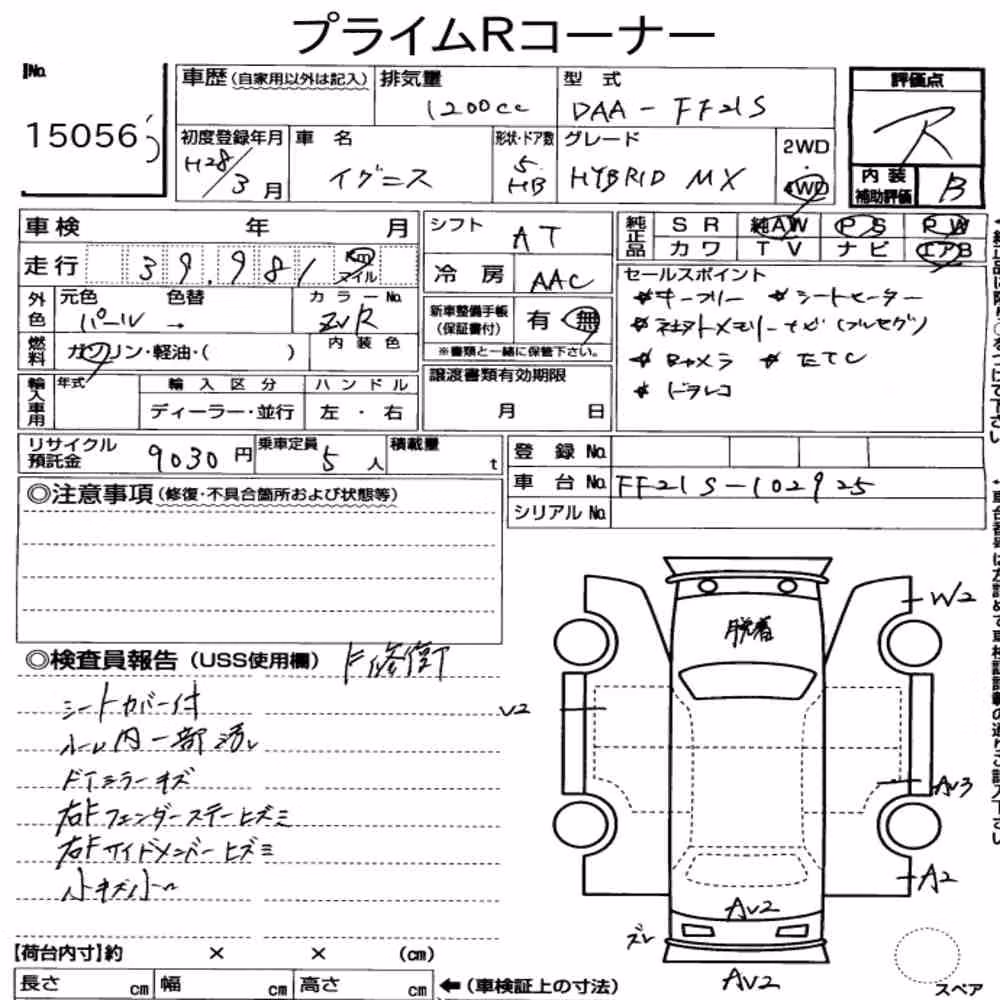 プライムRコーナー
No.
15056
車歴(自家用以外は記入)
排気量
1200cc
型式
DAA-FF21S
評価点
R
初度登録年月
H28/3月
車名
イグニス
形状・ドア数
5
HB
グレード
HYBRID MX
2WD
・
4WD
内装
補助評価
B
車検 年 月
走行 39,981 Km マイル
外色
元色 色替
パール →
カラーNo.
ZVR
燃料
ガソリン・軽油・( )
内装色
輸入車用
年式
輸入区分
ディーラー・並行
ハンドル
左・右
シフト
AT
冷房
AAC
新車整備手帳
(保証書付)
有 無
※書類と一緒に保管下さい。
譲渡書類有効期限
月 日
純正品
SR 純AW PS PW
カワ TV ナビ エアB
セールスポイント
☆キーフリー ☆シートヒーター
☆社外メモリーナビ(フルセグ)
☆Bカメラ ☆ETC
☆ドラレコ
リサイクル
預託金
9030円
乗車定員
5人
積載量
t
登録No.
車台No. FF21S-102925
シリアルNo.
◎注意事項(修復・不具合箇所および状態等)
◎検査員報告(USS使用欄) F修衝
シートカバー付
ルーム内一部汚レ
ドアミラーキズ
右Fフェンダーステーヒズミ
右Fサイドメンバーヒズミ
小キズ小凹
脱着
W2
V2
AV3
A2
AV2
ズレ
AV2
スペア
【荷台内寸】約 × × (cm)
長さ cm 幅 cm 高さ cm
←(車検証上の寸法)